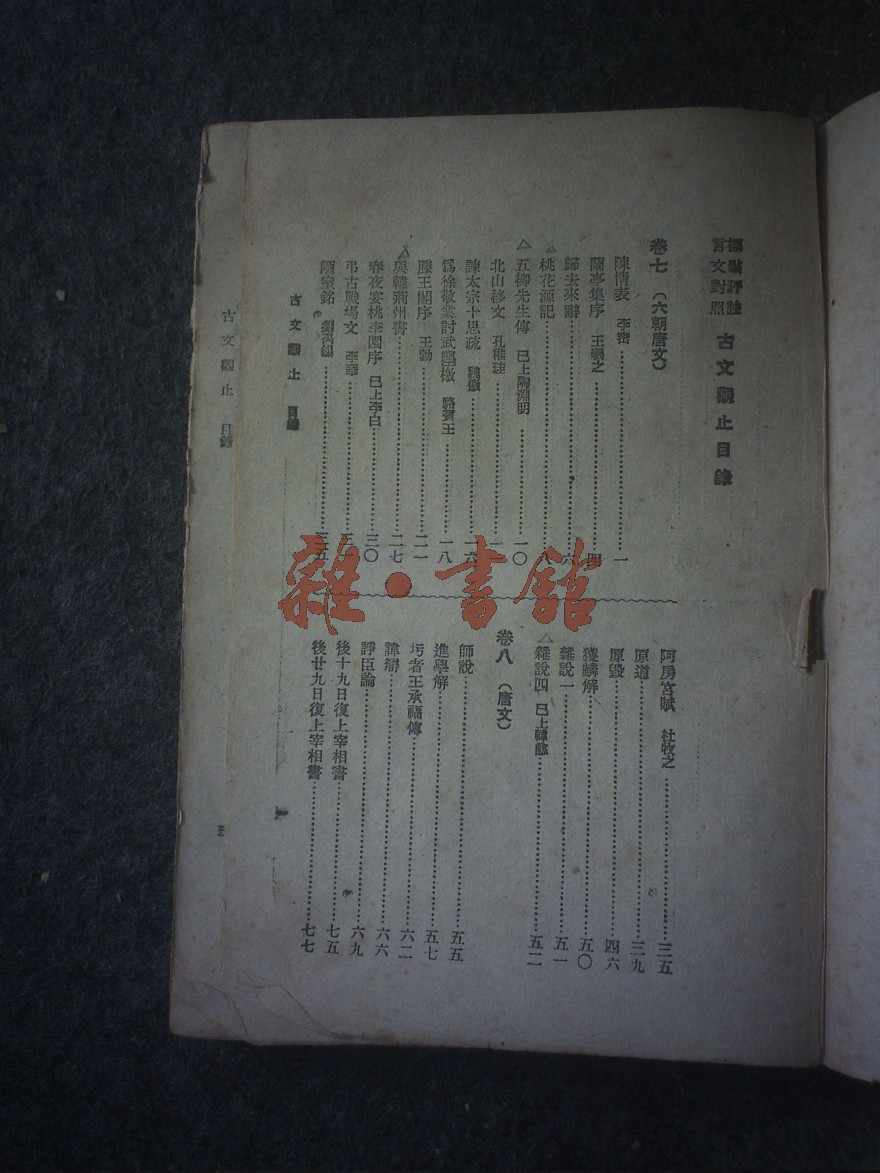 標點評註
言文對照
古文觀止目錄
卷七 (六朝唐文)
陳情表 李密……一
蘭亭集序 王羲之……四
歸去來辭……六
桃花源記……八
五柳先生傳 已上陶淵明……一〇
北山移文 孔稚珪……一
諫太宗十思疏 魏徵……一六
爲徐敬業討武曌檄 駱賓王……一八
滕王閣序 王勃……二一
與韓荊州書……二七
春夜宴桃李園序 已上李白……三〇
弔古戰場文 李華……三
陋室銘 劉禹錫……三五
古文觀止 目錄
阿房宮賦 杜牧之……三五
原道……三九
原毀……四六
獲麟解……五〇
雜說一……五一
雜說四 已上韓愈……五二
卷八 (唐文)
師說……五五
進學解……五七
圬者王承福傳……六二
諱辯……六六
諍臣論……六九
後十九日復上宰相書……七五
後廿九日復上宰相書……七七
古文觀止 目錄
雜·書館